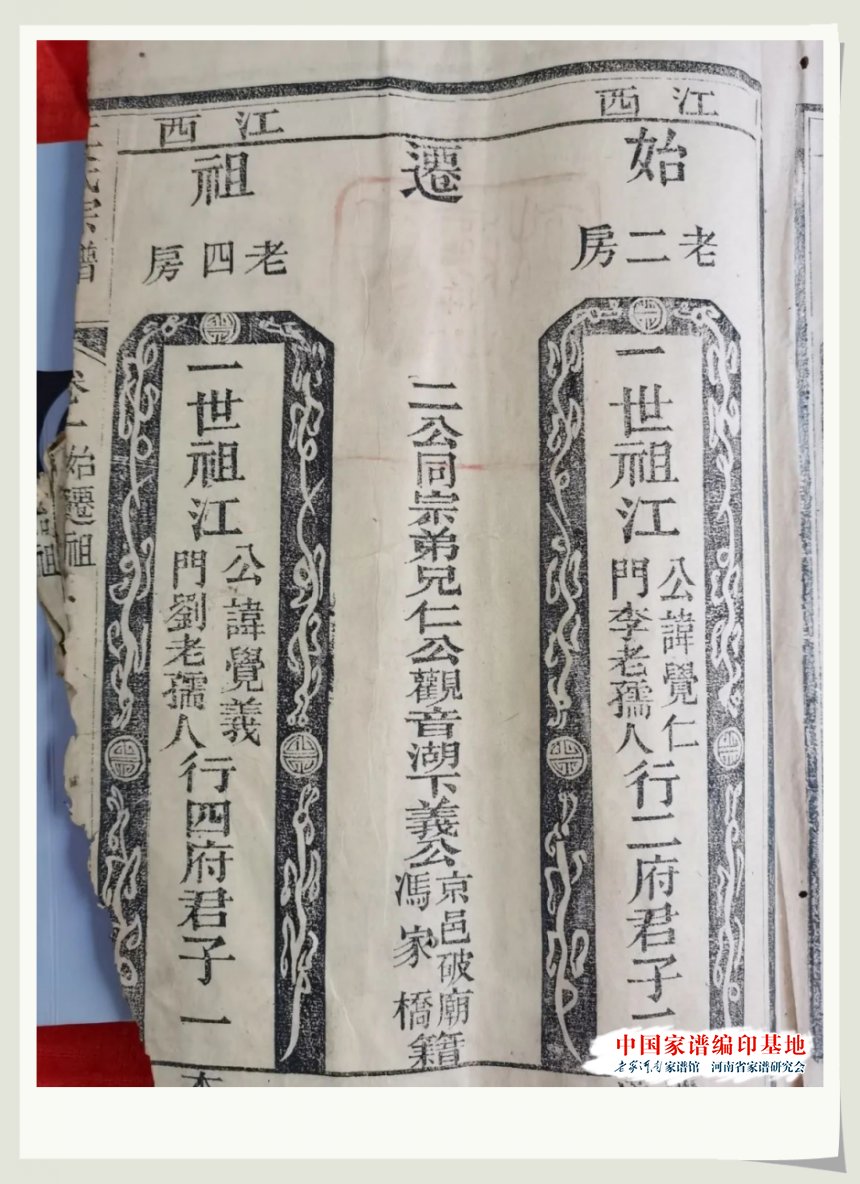 江西
江西
始遷祖
老二房
老四房
一世祖江
公諱覺仁
門李老孺人
行二府君子一
二公同宗弟兄仁公觀音湖下義公
京邑破廟
馮家橋
籍
一世祖江
公諱覺義
門劉老孺人
行四府君子一
氏宗譜
卷一始遷祖
祖
中国家谱编印基地
家谱馆 河南省家谱研究会